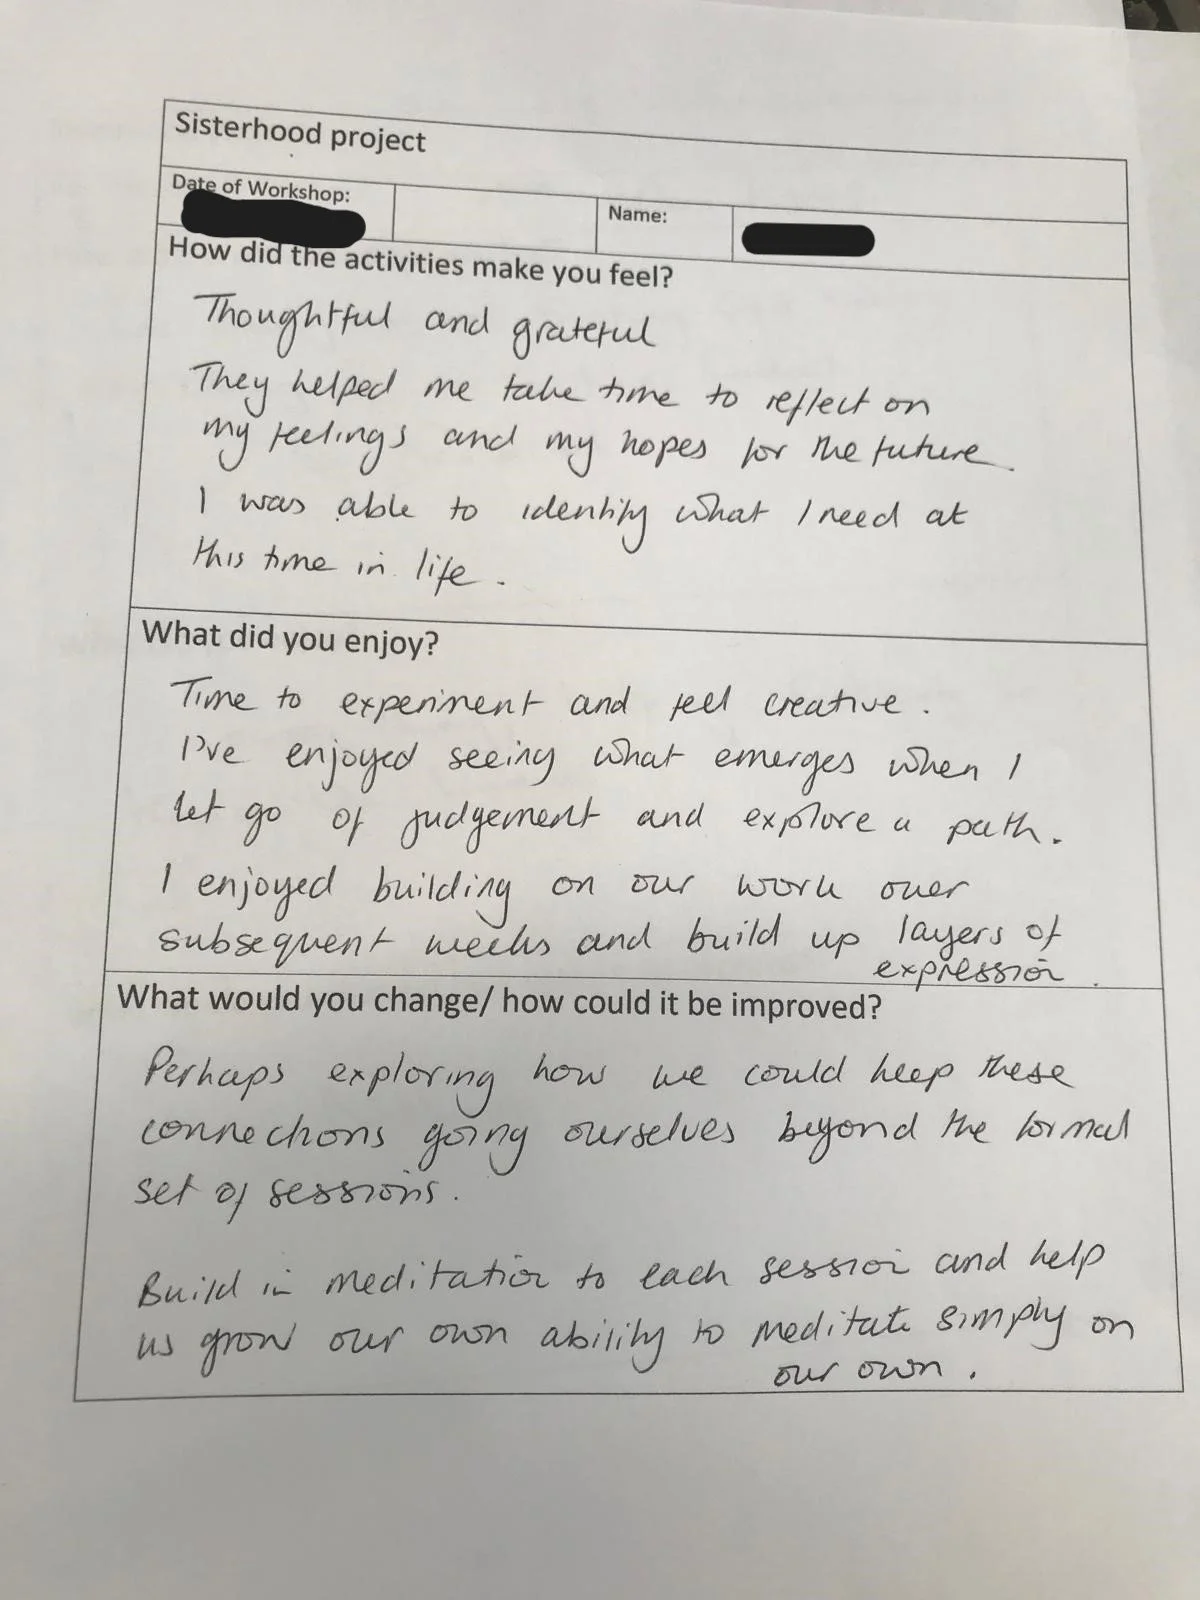 Sisterhood project
Date of Workshop:
Name:
How did the activities make you feel?
Thoughtful and grateful
They helped me take time to reflect on
my feelings and my hopes for the future.
I was able to identify what I need at
this time in life.
What did you enjoy?
Time to experiment and feel creative.
I've enjoyed seeing what emerges when I
let go of judgement and explore a path.
I enjoyed building on our work over
subsequent weeks and build up layers of
expression.
What would you change/ how could it be improved?
Perhaps exploring how we could keep these
connections going ourselves beyond the formal
set of sessions.
Build in meditation to each session and help
us grow our own ability to meditate simply on
our own.